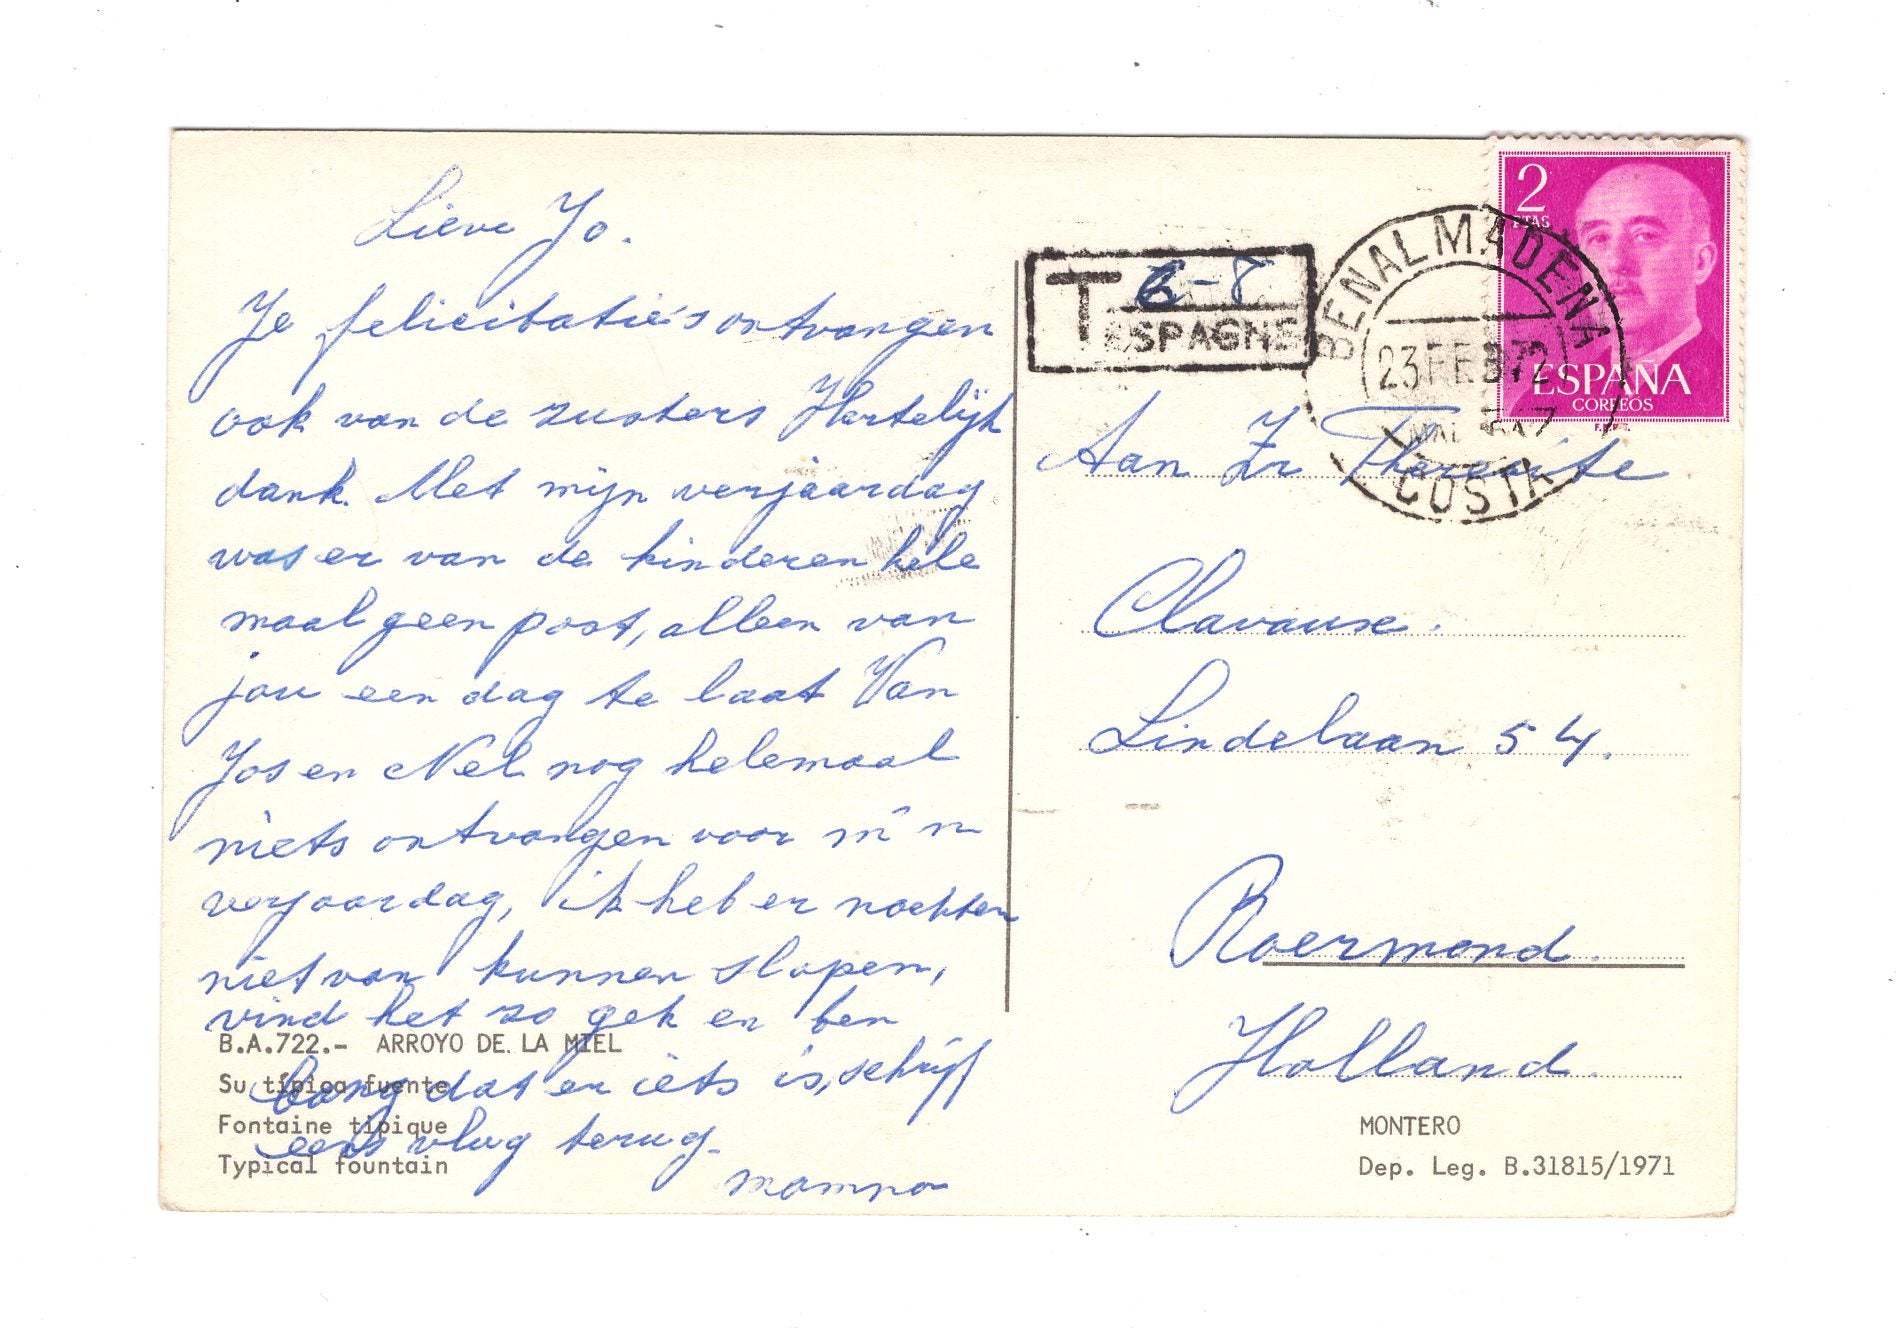 Lieve Jo.
Je felicitatie's ontvangen
ook van de zusters Hertelijk
dank. Met mijn verjaardag
was er van de kinderen hele
maal geen post, alleen van
jou een dag te laat Van
Jos en Nel nog helemaal
niets ontvangen voor m'n
verjaardag, ik heb er nachten
niet van kunnen slapen,
vind het zo gek en ben
bang dat er iets is, schrijf
eens vlug terug.
mamma
B.A.722.- ARROYO DE LA MIEL
Su típica fuente
Fontaine tipique
Typical fountain
T 6-8
ESPAGNE
BENALMADENA
23 FEB 72
COSTA
2
PTAS
ESPAÑA
CORREOS
Aan Zr Theresite
Clavause.
Lindelaan 54.
Roermond.
Holland.
MONTERO
Dep. Leg. B.31815/1971